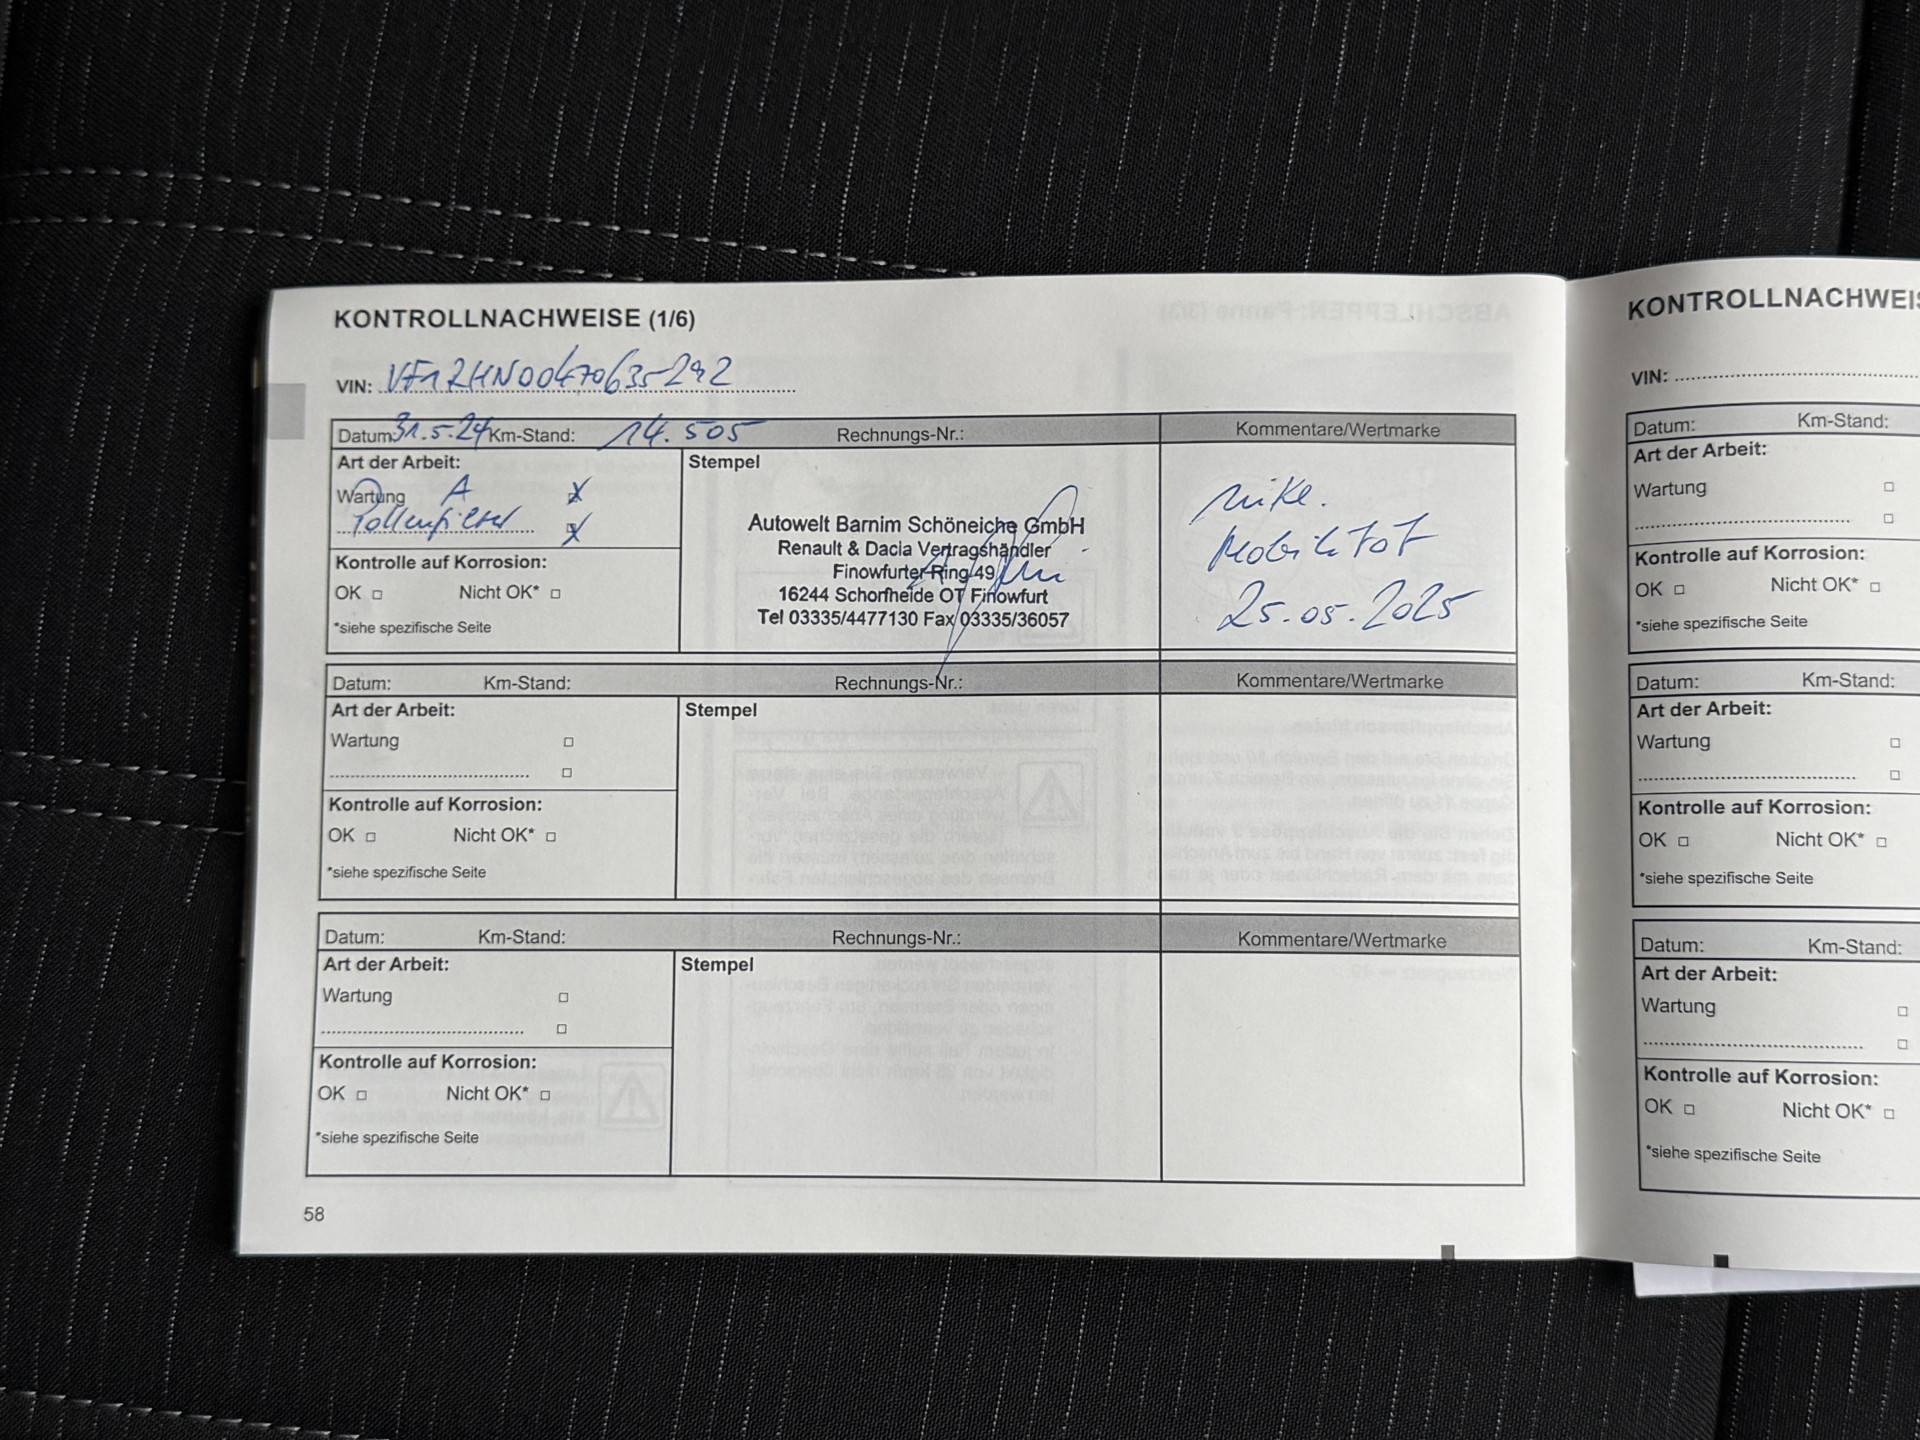 KONTROLLNACHWEISE (1/6)
VIN: VF1RHN00470635292
Datum: 31.5.24 Km-Stand: 14.505 Rechnungs-Nr.: Kommentare/Wertmarke
Art der Arbeit:
Wartung A X
Pollenfilter X
Kontrolle auf Korrosion:
OK □ Nicht OK* □
*siehe spezifische Seite
Stempel
Autowelt Barnim Schöneiche GmbH
Renault & Dacia Vertragshändler
Finowfurter Ring 49
16244 Schorfheide OT Finowfurt
Tel 03335/4477130 Fax 03335/36057
Mobilität
25.05.2025
Datum: Km-Stand: Rechnungs-Nr.: Kommentare/Wertmarke
Art der Arbeit:
Wartung □
□
Kontrolle auf Korrosion:
OK □ Nicht OK* □
*siehe spezifische Seite
Stempel
Datum: Km-Stand: Rechnungs-Nr.: Kommentare/Wertmarke
Art der Arbeit:
Wartung □
□
Kontrolle auf Korrosion:
OK □ Nicht OK* □
*siehe spezifische Seite
Stempel
58
KONTROLLNACHWEIS
VIN:
Datum: Km-Stand:
Art der Arbeit:
Wartung □
□
Kontrolle auf Korrosion:
OK □ Nicht OK* □
*siehe spezifische Seite
Datum: Km-Stand:
Art der Arbeit:
Wartung □
□
Kontrolle auf Korrosion:
OK □ Nicht OK* □
*siehe spezifische Seite
Datum: Km-Stand:
Art der Arbeit:
Wartung □
□
Kontrolle auf Korrosion:
OK □ Nicht OK* □
*siehe spezifische Seite